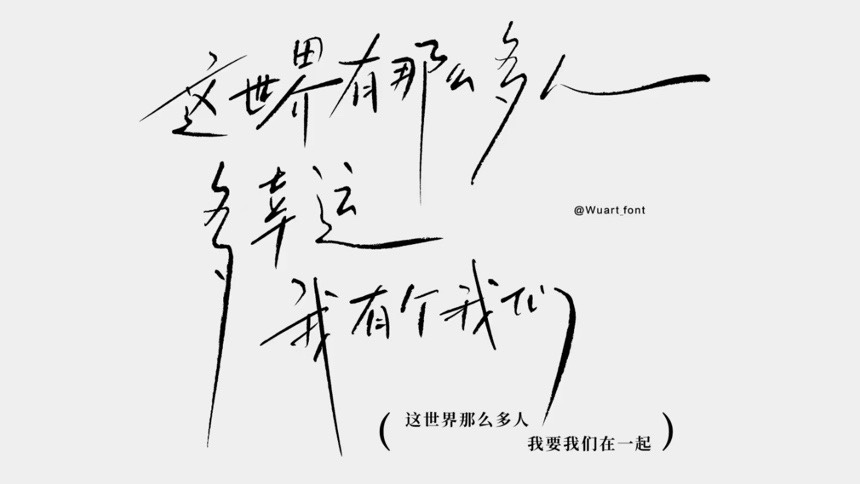 这世界有那么多人
多幸运
@Wuart_font
我有个我们
(这世界那么多人
我要我们在一起)